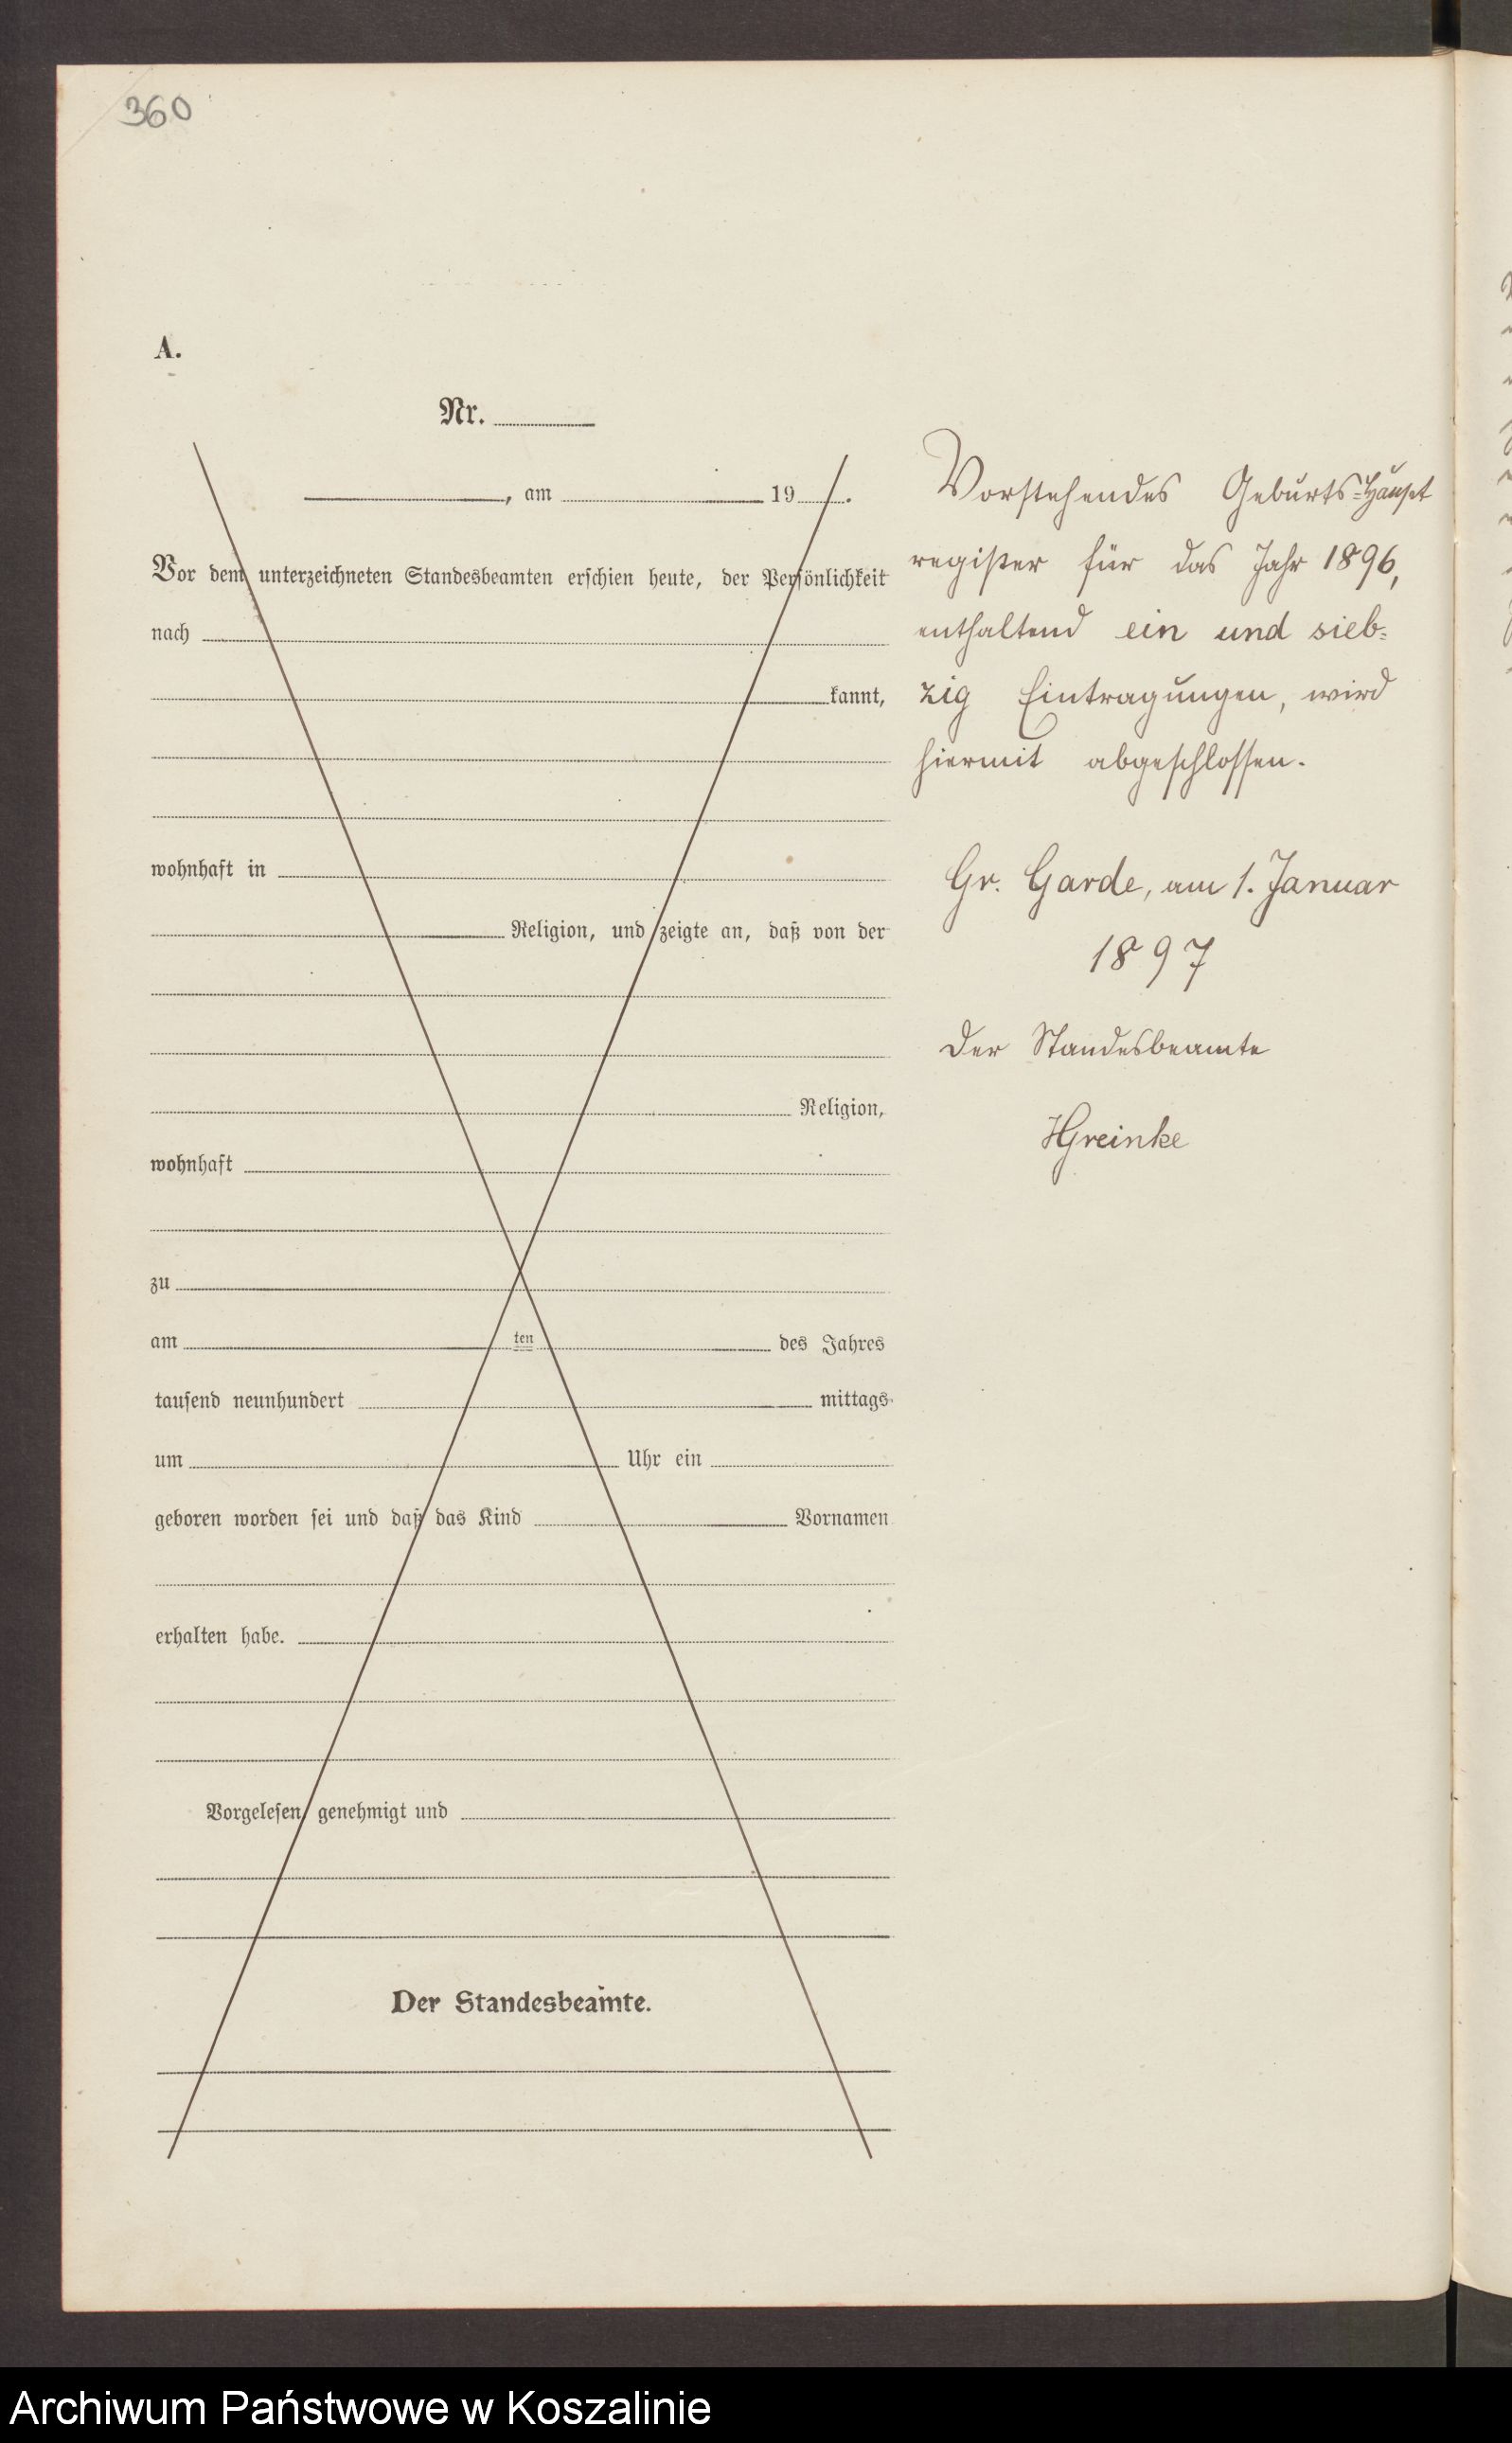 360
A.
Nr.
, am 19 .
Vor dem unterzeichneten Standesbeamten erschien heute, der Persönlichkeit
nach
kannt,
wohnhaft in
Religion, und zeigte an, daß von der
Religion,
wohnhaft
zu
am ten des Jahres
tausend neunhundert mittags
um Uhr ein
geboren worden sei und daß das Kind Vornamen
erhalten habe.
Vorgelesen, genehmigt und
Der Standesbeamte.
Vorstehendes Geburts-Haupt
register für das Jahr 1896,
enthaltend ein und sieb-
zig Eintragungen, wird
hiermit abgeschlossen.
Gr. Garde, am 1. Januar
1897
Der Standesbeamte
Greinke
Archiwum Państwowe w Koszalinie